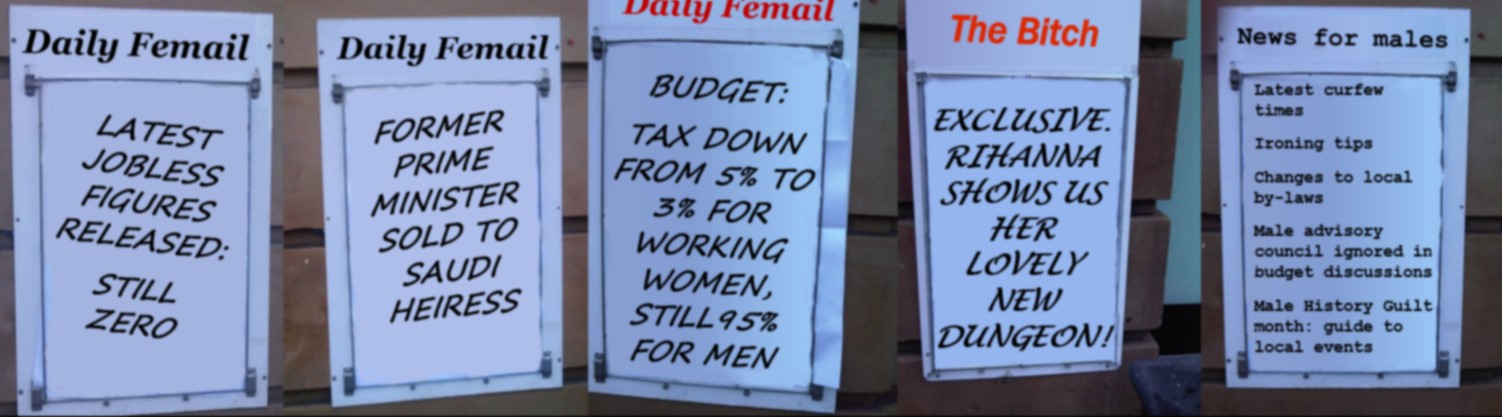 Daily Femail
LATEST
JOBLESS
FIGURES
RELEASED:
STILL
ZERO
Daily Femail
FORMER
PRIME
MINISTER
SOLD TO
SAUDI
HEIRESS
Daily Femail
BUDGET:
TAX DOWN
FROM 5% TO
3% FOR
WORKING
WOMEN,
STILL 95%
FOR MEN
The Bitch
EXCLUSIVE.
RIHANNA
SHOWS US
HER
LOVELY
NEW
DUNGEON!
News for males
Latest curfew
times
Ironing tips
Changes to local
by-laws
Male advisory
council ignored in
budget discussions
Male History Guilt
month: guide to
local events